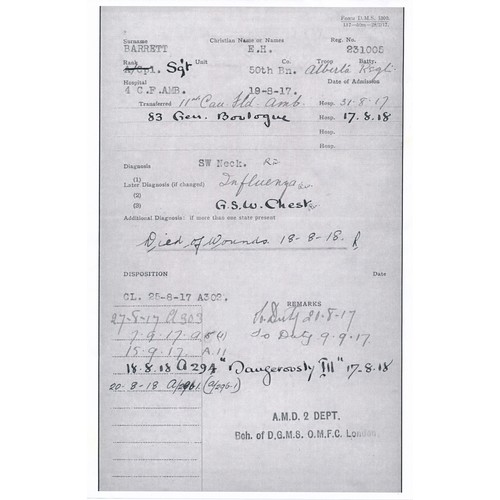 Form D.M.S. 1300.
Surname Christian Name or Names Reg. No.
BARRETT E.H. 231005
Rank Unit Co. Troop Batty.
L/Cpl. Sgt 50th Bn. Alberta Regt
Hospital Date of Admission
4 C.F.AMB. 19-8-17.
Transferred 11th Can Fld. Amb. Hosp. 31-8-17
83 Gen. Boulogne Hosp. 17.8.18
Hosp.
Hosp.
Diagnosis SW Neck.
(1)
Later Diagnosis (if changed) Influenza
(2)
(3) G.S.W. Chest
Additional Diagnosis: if more than one state present
Died of Wounds 18-8-18.
DISPOSITION Date
CL. 25-8-17 A302. REMARKS
27-8-17 A303 To Duty 21-8-17
7-9-17 To Duty 9-9-17.
15-9-17. A.11
18.8.18 A294 "Dangerously Ill" 17-8-18
20-8-18 A/296.1. (A/296.1)
A.M.D. 2 DEPT.
Bch. of D.G.M.S. O.M.F.C. London.